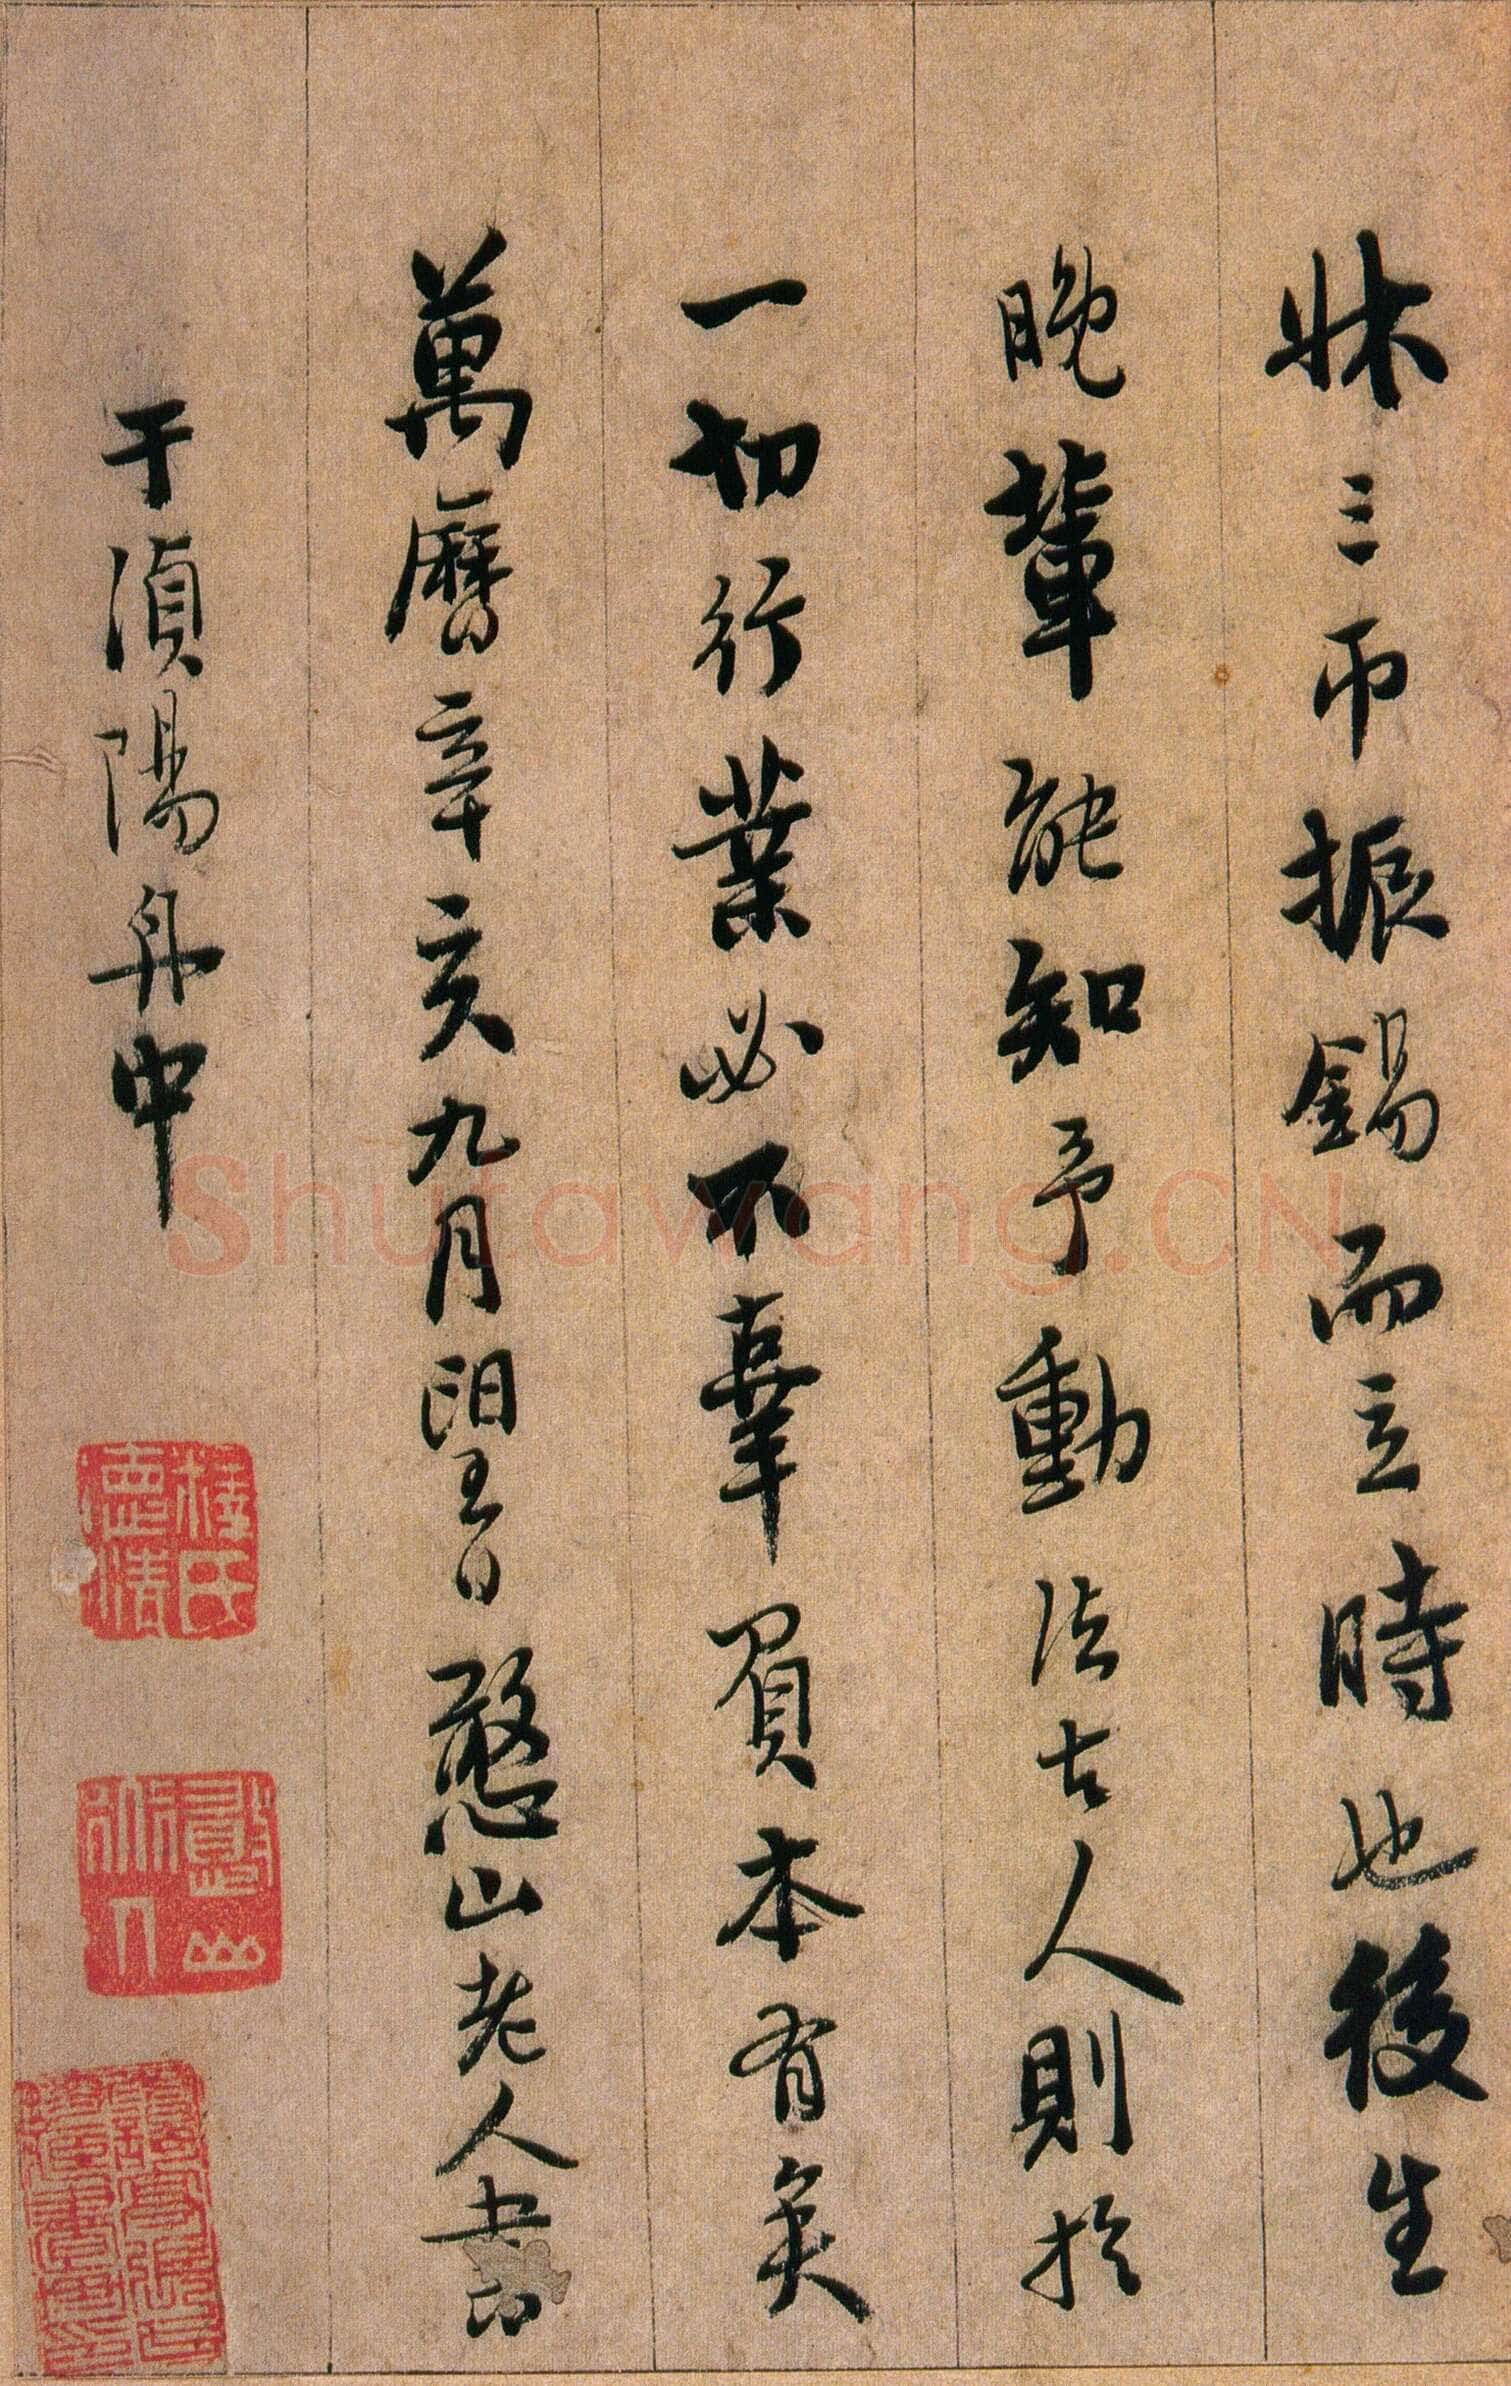 牀三帀振錫而立時也後生
晚輩能知予動法古人則於
一切行業必不辜負本有矣
萬曆辛亥九月朢日憨山老人書
于湞陽舟中
Shufawang.CN
釋氏德清
憨山